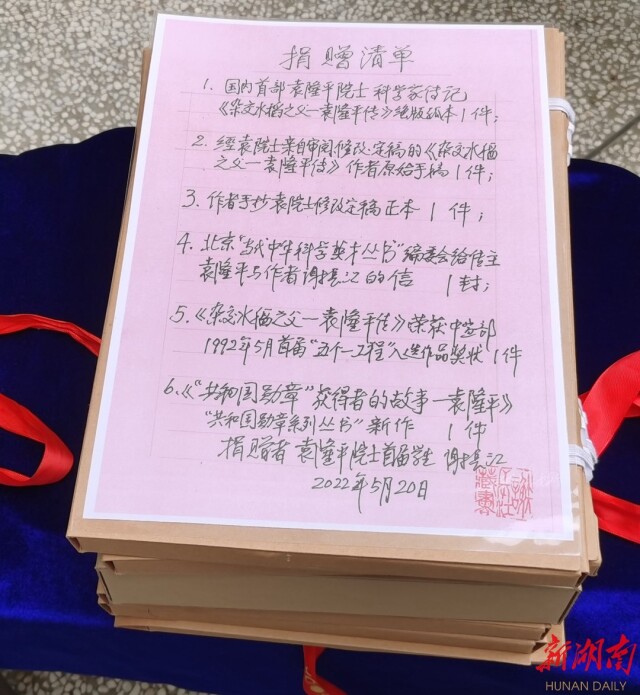 捐赠清单
1. 国内首部袁隆平院士科学家传记
《杂交水稻之父一袁隆平传》绝版纸本1件;
2. 经袁院士亲自审阅修改·定稿的《杂交水稻
之父一袁隆平传》作者原始手稿1件;
3. 作者手抄袁院士修改定稿正本 1件;
4. 北京"当代中华科学英才丛书"编委会给传主
袁隆平与作者谢长江的信 1封;
5.《杂交水稻之父一袁隆平传》荣获中宣部
1992年5月首届"五个一工程"入选作品奖状1件
6.《"共和国勋章"获得者的故事一袁隆平》
"共和国勋章系列丛书"新作 1件
捐赠者 袁隆平院士首届学生 谢长江
2022年5月20日
新湖南
HUNAN DAILY